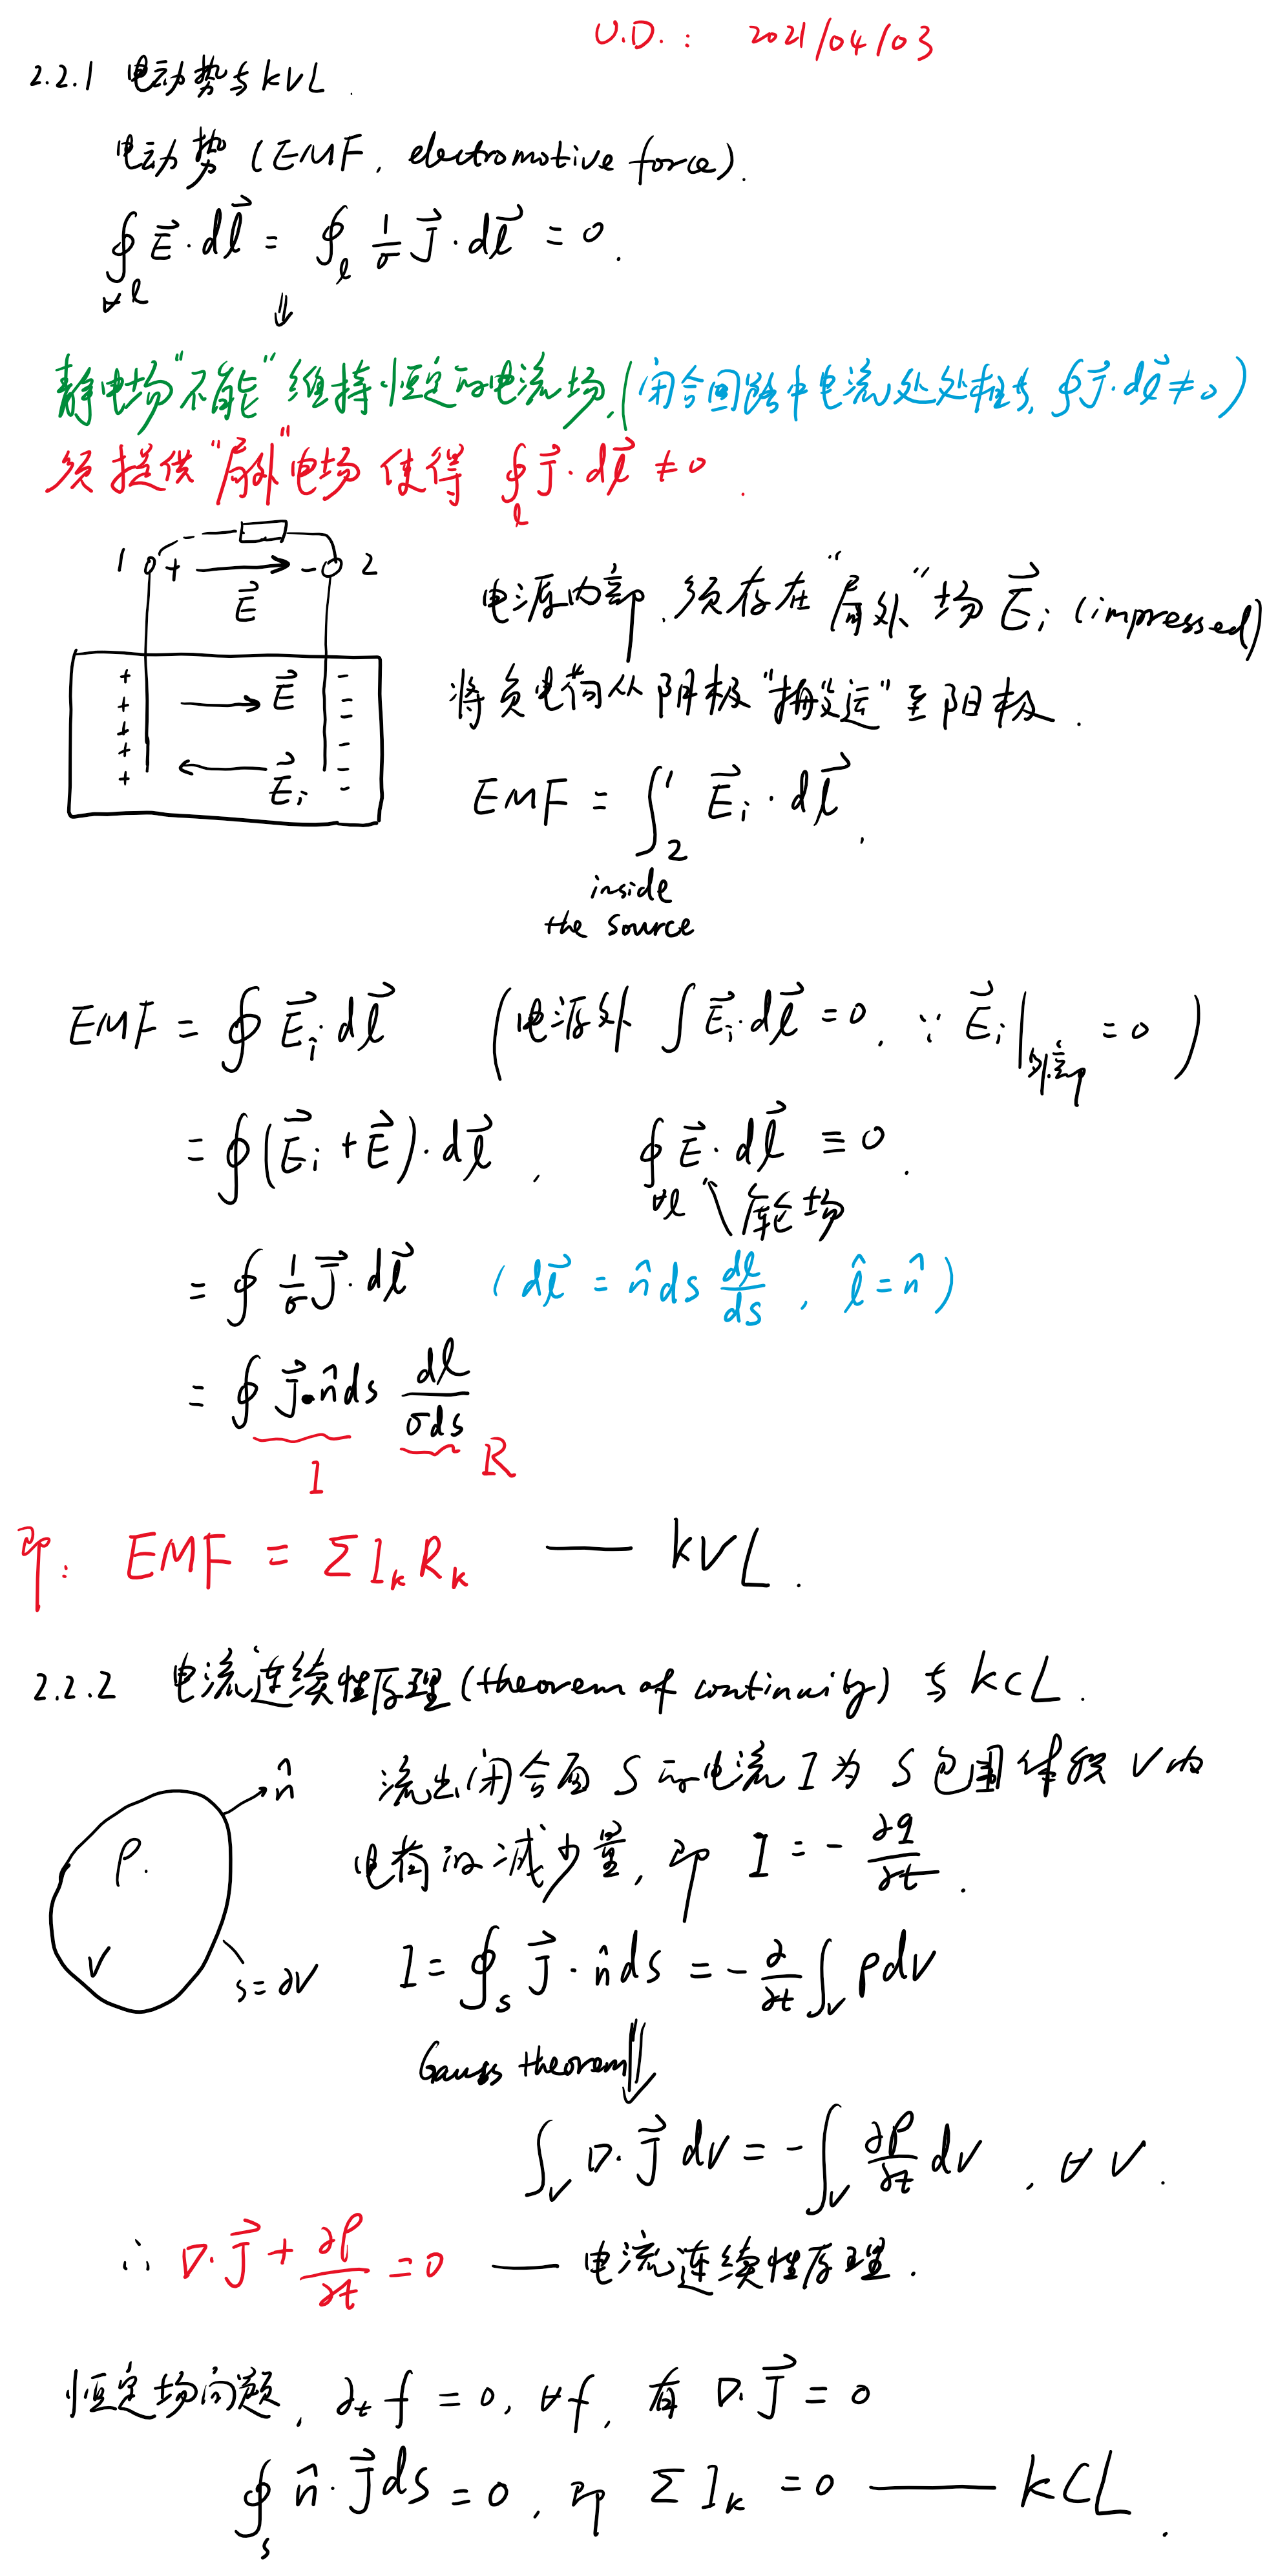 U.D.: 2021/04/03
2.2.1 电动势与KVL.
电动势 (EMF, electromotive force).
∮_{∀l} E⃗·dl⃗ = ∮_l 1/σ J⃗·dl⃗ = 0.
⇓
静电场“不能”维持恒定的电流场, (闭合回路中电流处处相等, ∮J⃗·dl⃗≠0)
须提供“局外”电场使得 ∮_l J⃗·dl⃗ ≠ 0.
1 + E⃗ - 2
+ + + + + E⃗ E⃗_i - - - - -
电源内部, 须存在“局外”场 E⃗_i (impressed)
将负电荷从阴极“搬运”至阳极.
EMF = ∫_2^1 E⃗_i·dl⃗.
inside
the source
EMF = ∮ E⃗_i dl⃗ (电源外 ∫E⃗_i·dl⃗ = 0, ∵ E⃗_i|_{外部} = 0)
= ∮(E⃗_i + E⃗)·dl⃗, ∮_{∀l} E⃗·dl⃗ ≡ 0.
库仑场
= ∮ 1/σ J⃗·dl⃗ (dl⃗ = n̂ ds dl/ds, l̂ = n̂)
= ∮ J⃗·n̂ds dl/σds
I R
即: EMF = Σ I_k R_k —— KVL.
2.2.2 电流连续性原理 (theorem of continuity) 与 KCL.
流出闭合面 S 的电流 I 为 S 包围体积 V 内
电荷的减少量, 即 I = - ∂q/∂t.
n̂
ρ.
V
s = ∂V
I = ∮_s J⃗·n̂ds = -∂/∂t ∫_V ρdv
Gauss theorem ⇓
∫_V ∇·J⃗ dv = -∫_V ∂ρ/∂t dv, ∀V.
∴ ∇·J⃗ + ∂ρ/∂t = 0 —— 电流连续性原理.
恒定场问题, ∂_t f = 0, ∀f, 有 ∇·J⃗ = 0
∮_s n̂·J⃗ds = 0, 即 Σ I_k = 0 —— KCL.